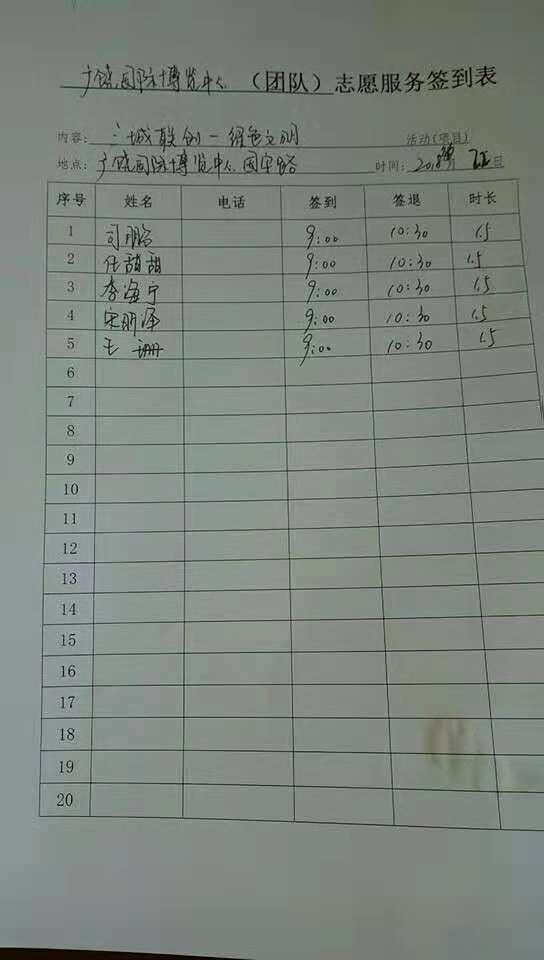 广饶国际博览中心 （团队）志愿服务签到表
内容：三城联创一绿色文明 活动（项目）
地点：广饶国际博览中心 时间：2018 日
序号 姓名 电话 签到 签退 时长
1 司鹏 9:00 10:30 1.5
2 任甜甜 9:00 10:30 1.5
3 李海宁 9:00 10:30 1.5
4 宋丽泽 9:00 10:30 1.5
5 王珊 9:00 10:30 1.5
6
7
8
9
10
11
12
13
14
15
16
17
18
19
20